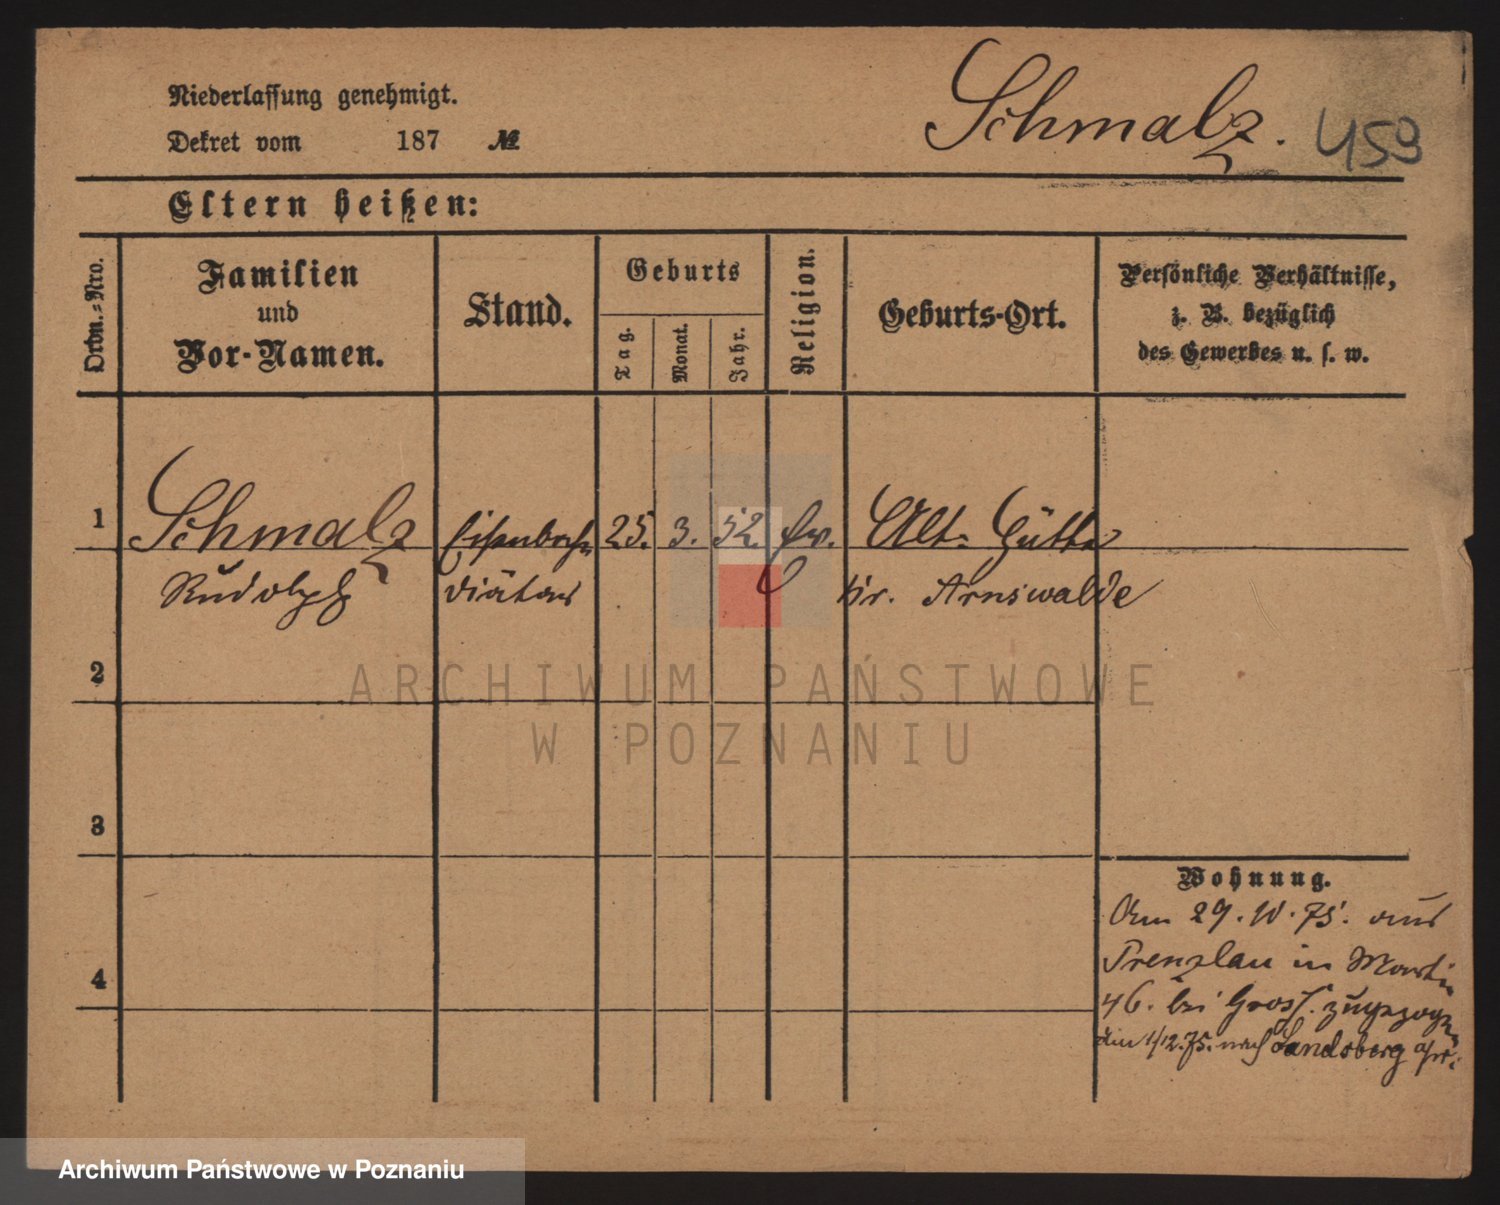 Niederlassung genehmigt.
Dekret vom 187 №
Schmalz. 459
Eltern heißen:
Ordn.-Nro.
Familien
und
Vor-Namen.
Stand.
Geburts
Tag.
Monat.
Jahr.
Religion.
Geburts-Ort.
Persönliche Verhältnisse,
z. B. bezüglich
des Gewerbes u. s. w.
1 Schmalz Eisenbahn 25. 3. 52. Ev. Alt-
Rudolph Diätar Kr. Arnswalde
2
ARCHIWUM PAŃSTWOWE
W POZNANIU
3
4
Wohnung.
Am 29. 10. 75. aus
Prenzlau in Martin
46. bei Gross. zugezogen
Am 1/12. 75. nach Landsberg a/W.
Archiwum Państwowe w Poznaniu